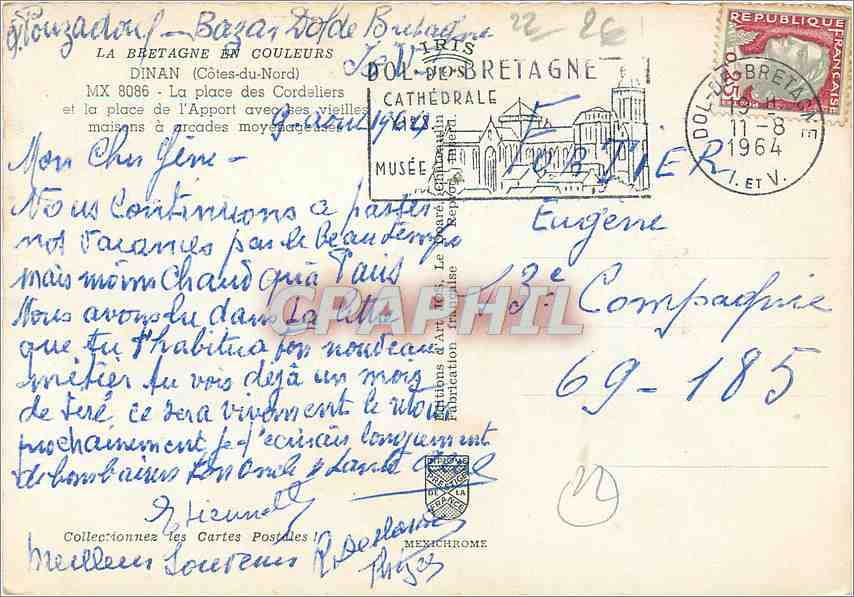 Bazar Dol de Bretagne
I. et V.
22 26
LA BRETAGNE EN COULEURS
DINAN (Côtes-du-Nord)
MX 8086 - La place des Cordeliers
et la place de l'Apport avec ses vieilles
maisons à arcades moyenâgeuses
9 aout 1964
Mon Cher Gène -
Nous Continuons a passer
nos vacances par le beau temps
mais moins chaud qu'à Paris
Nous avons lu dans ta lettre
que tu t'habitua ton nouveau
métier tu vois dejà un mois
de tiré, ce sera vivement le retour
prochainement je t'ecrirais longuement
de bons baisers ton oncle & tante
Etienne
Meilleurs Souvenirs
Collectionnez les Cartes Postales !
IRIS
DOL-DE-BRETAGNE
CATHÉDRALE
MUSÉE
DOL-DE-BRETAGNE
19 H
11-8
1964
I. ET V.
REPUBLIQUE
FRANÇAISE
0,25
POSTES
FORTIER
Eugène
13e Compagnie
69-185
22
Editions d'Art Iris, Le Doaré, Châteaulin
Fabrication française
CPAPHIL
DIPLOME
PRESTIGE
DE LA
FRANCE
MEXICHROME